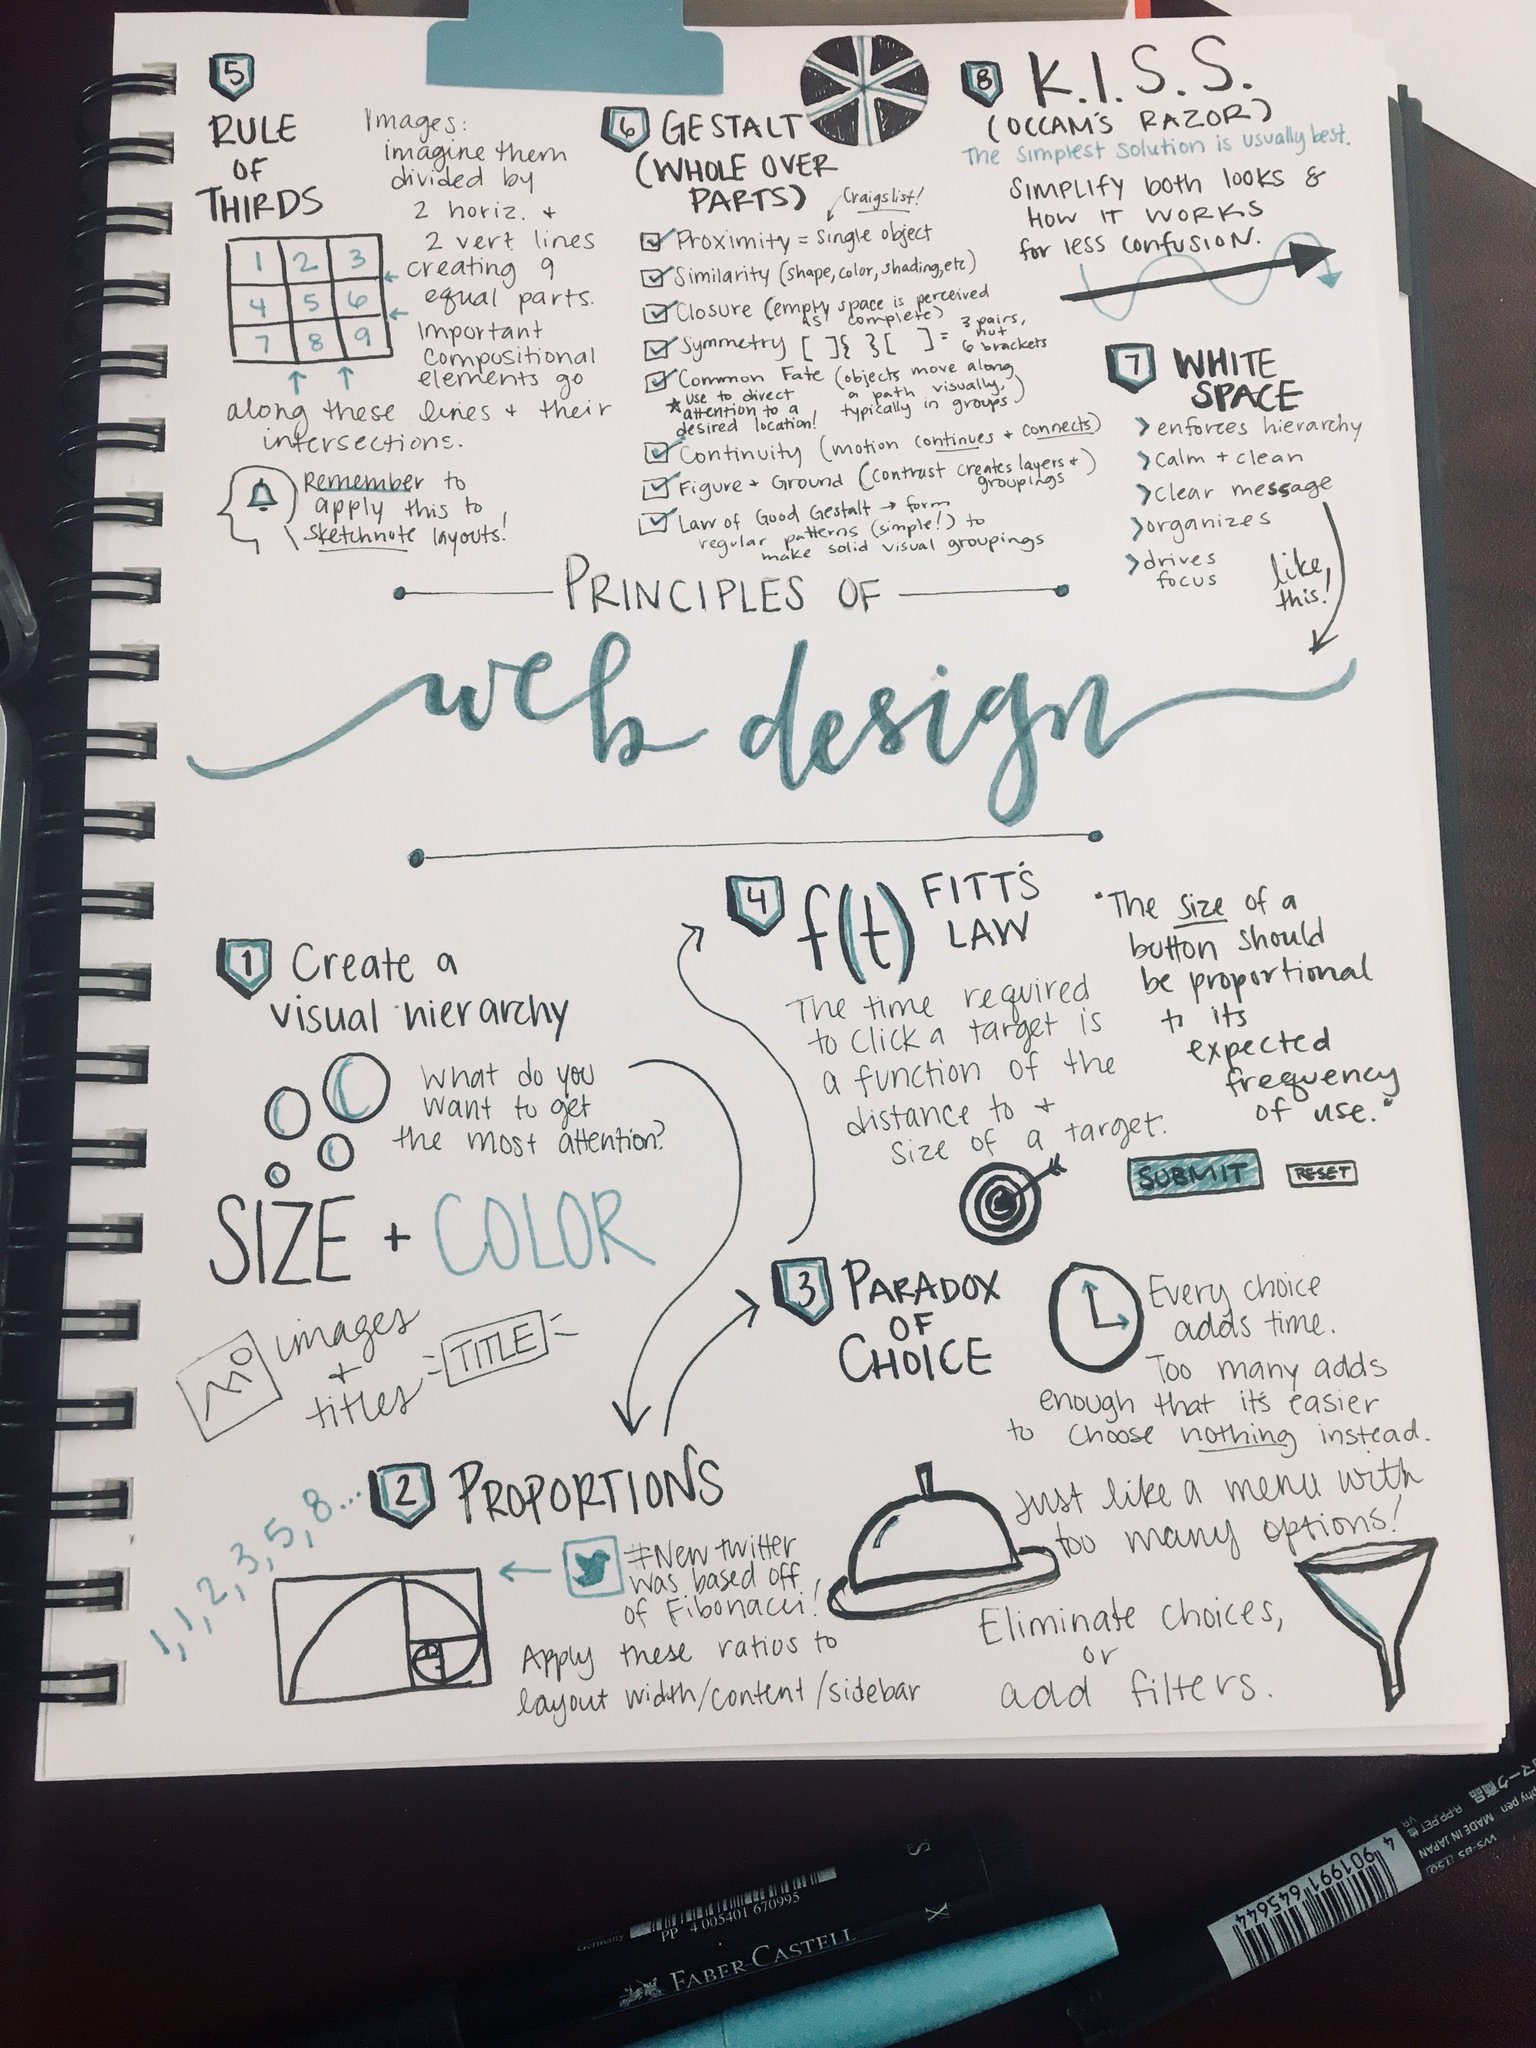 5
RULE
OF
THIRDS
1 2 3
4 5 6
7 8 9
Images:
imagine them
divided by
2 horiz. +
2 vert lines
creating 9
equal parts.
Important
compositional
elements go
along these lines + their
intersections.
Remember to
apply this to
sketchnote layouts!
6 GESTALT
(WHOLE OVER
PARTS)
Craigslist!
Proximity = single object
Similarity (shape, color, shading, etc)
Closure (empty space is perceived
as complete)
Symmetry [ ]{ }[ ] = 3 pairs,
not
6 brackets
Common Fate (objects move along
a path visually,
typically in groups)
* use to direct
attention to a
desired location!
Continuity (motion continues + connects)
Figure + Ground (contrast creates layers +
groupings)
Law of Good Gestalt → form
regular patterns (simple!) to
make solid visual groupings
8 K.I.S.S.
(OCCAM'S RAZOR)
The simplest solution is usually best.
SIMPLIFY both looks &
HOW IT WORKS
for less confusion.
7 WHITE
SPACE
> enforces hierarchy
> calm + clean
> clear message
> organizes
> drives
focus
like,
this!
PRINCIPLES OF
web design
1 Create a
visual hierarchy
What do you
want to get
the most attention?
SIZE + COLOR
images
+
titles
TITLE
2 PROPORTIONS
1, 1, 2, 3, 5, 8...
#New Twitter
was based off
of Fibonacci!
Apply these ratios to
layout width/content/sidebar
3 PARADOX
OF
CHOICE
Every choice
adds time.
Too many adds
enough that it's easier
to choose nothing instead.
Just like a menu with
too many options!
Eliminate choices,
or
add filters.
4 f(t) FITT'S
LAW
The time required
to click a target is
a function of the
distance to +
size of a target.
"The size of a
button should
be proportional
to its
expected
frequency
of use."
SUBMIT RESET
S
X
Germany
PP 4 005401 670995
FABER-CASTELL
4 901991 645644
MADE IN JAPAN